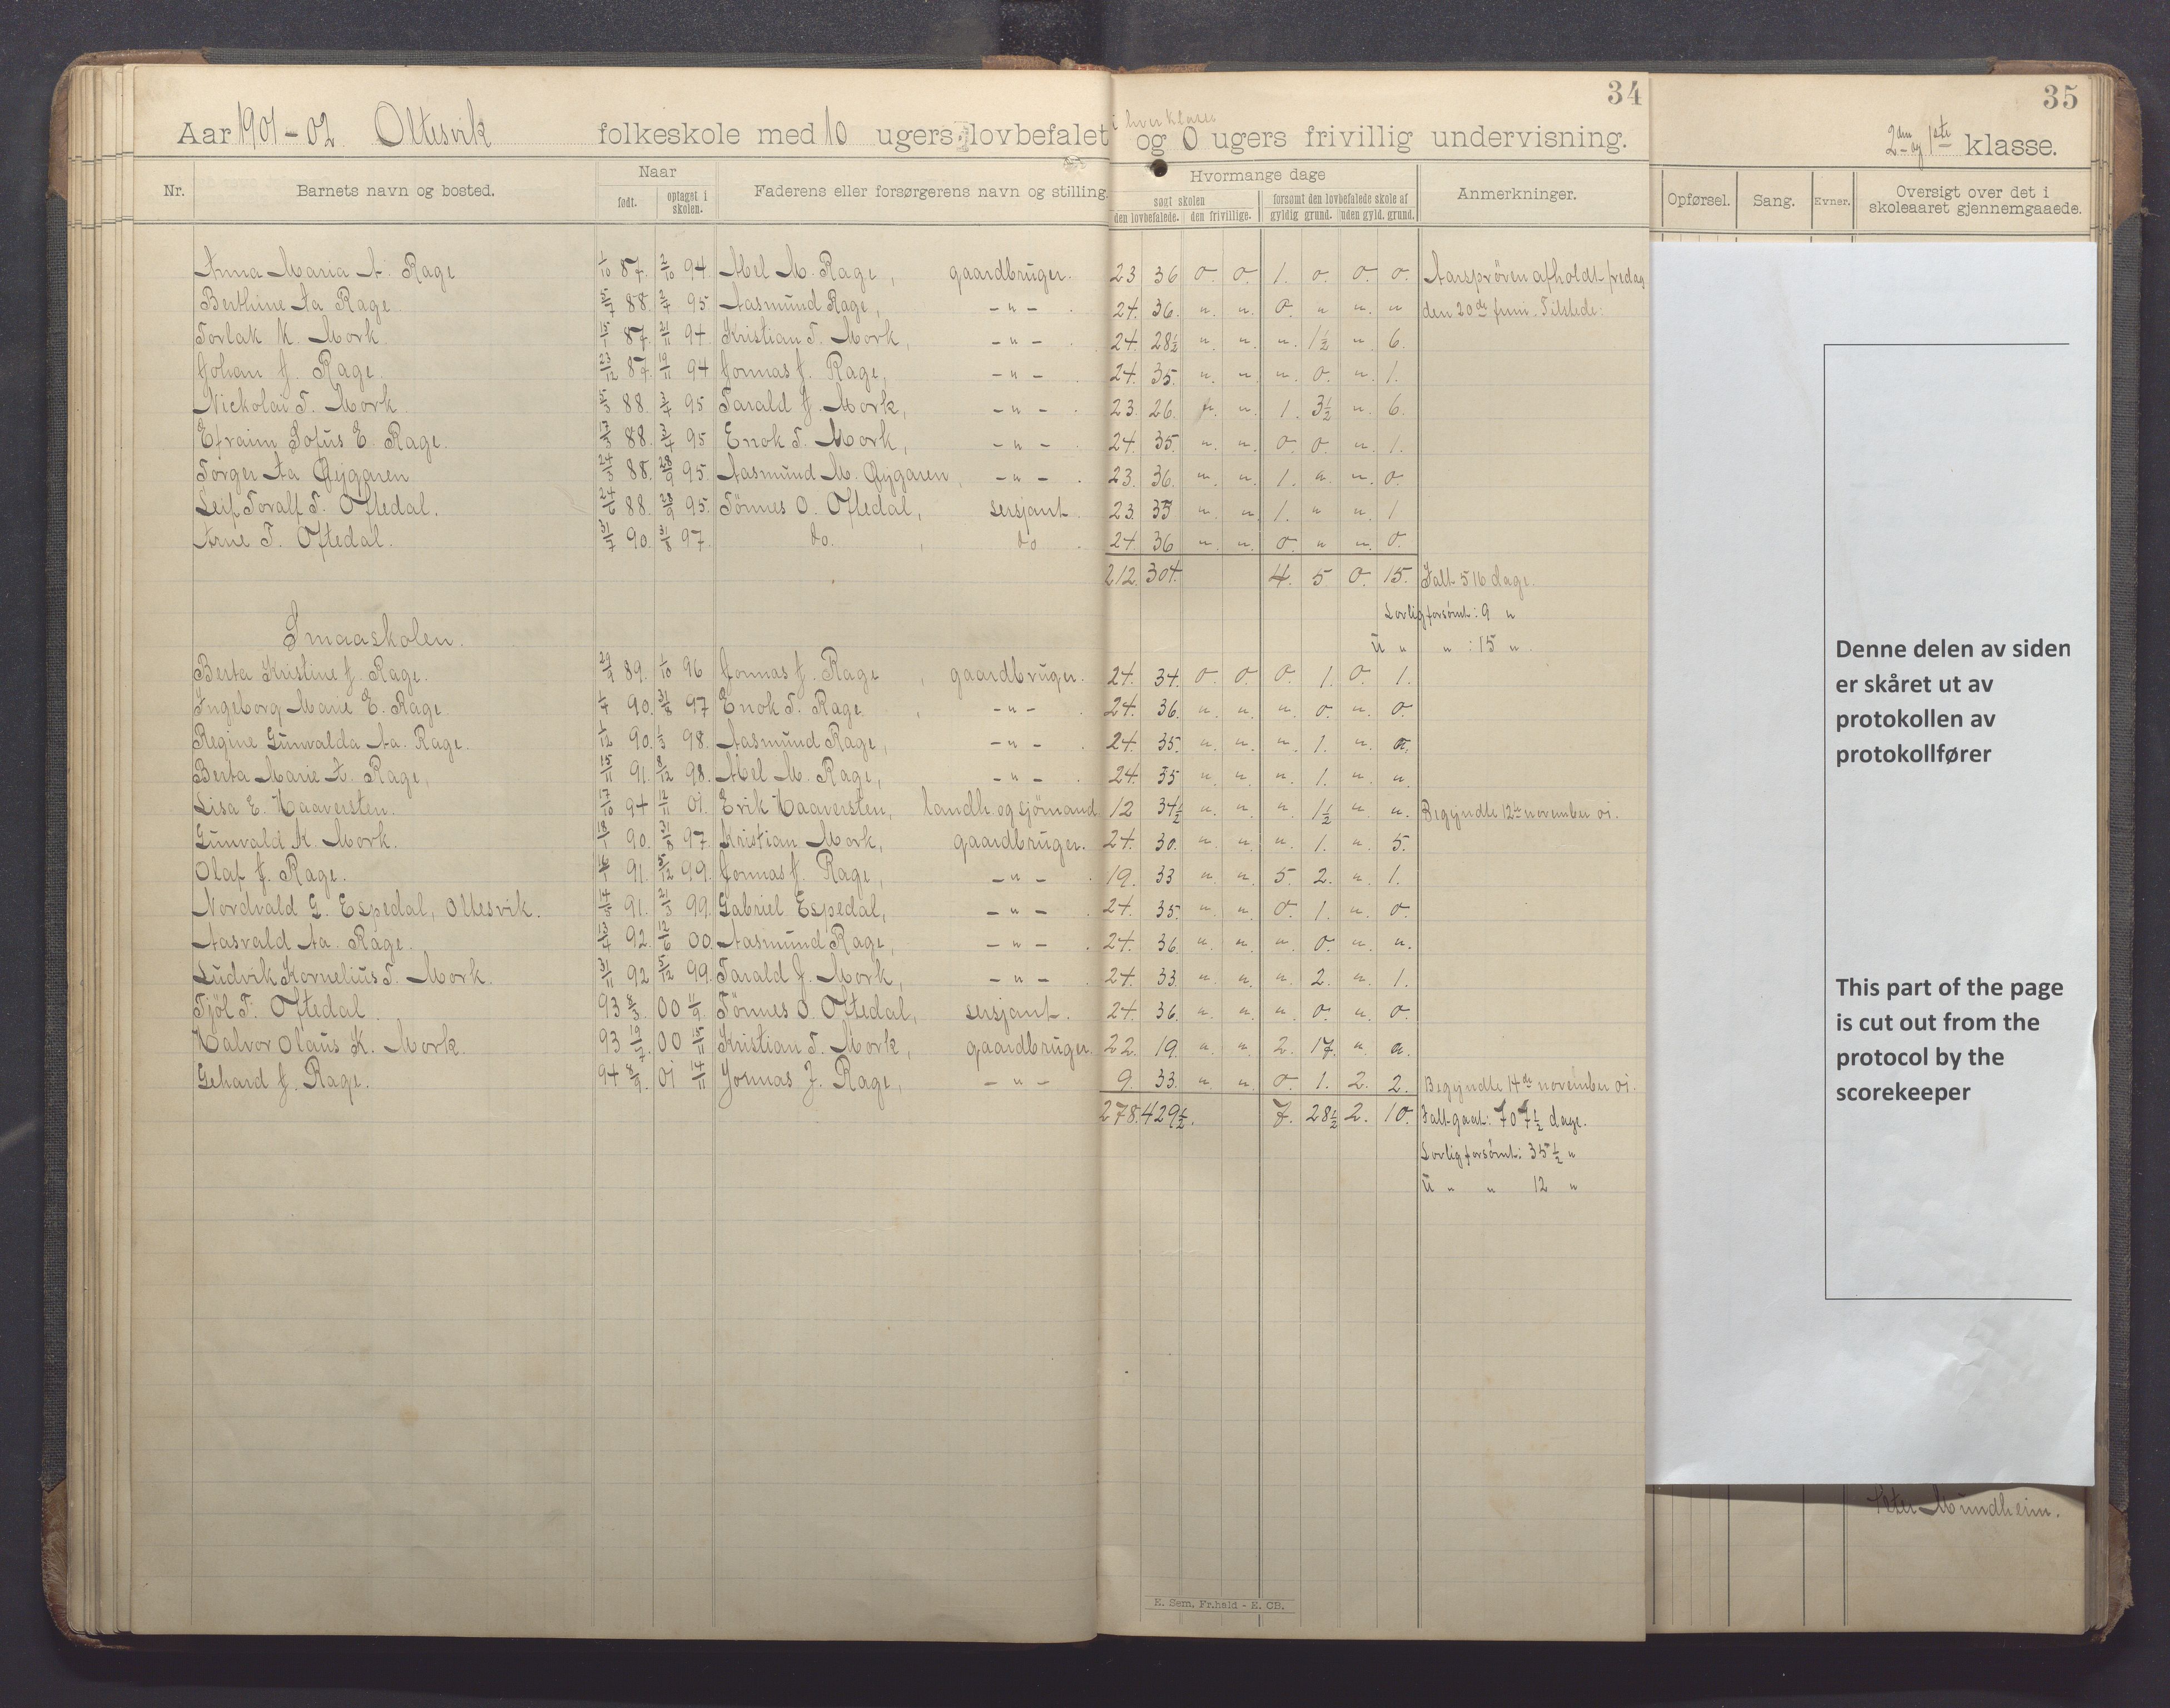 34
35
i hver klasse
Aar 1901-02 Oltesvik folkeskole med 10 ugers lovbefalet og 0 ugers frivillig undervisning.
2den og 1ste klasse.
Nr. Barnets navn og bosted. Naar født. optaget i skolen. Faderens eller forsørgerens navn og stilling. Hvormange dage søgt skolen den lovbefalede. den frivillige. forsømt den lovbefalede skole af gyldig grund. uden gyld. grund. Anmerkninger. Opførsel. Sang. Evner. Oversigt over det i skoleaaret gjennemgaaede.
Anna Maria A. Rage 1/10 87. 2/10 94. Abel M. Rage, gaardbruger. 23 36 0. 0. 1. 0. 0. 0. Aarsprøven afholdt fredag
Berthine Aa Rage 5/7 88. 2/4 95. Aasmund Rage, -"- 24. 36. " " 0. " " " den 20de juni. Tilstede:
Torlak K. Mork. 15/1 87. 21/11 94. Kristian T. Mork, -"- 24. 28½ " " " 1½ " 6.
Johan J. Rage. 23/12 87. 19/11 94 Jonnas J. Rage, -"- 24. 35. " " " 0. " 1.
Nickolai T. Mork 5/3 88. 3/4 95 Tarald J. Mork, -"- 23. 26. " " 1. 3½ " 6.
Efraim Sofus E. Rage. 13/3 88. 3/4 95 Enok T. Mork, -"- 24. 35. " " 0. 0. " 1.
Torger Aa Øygaren 24/3 88. 28/9 95. Aasmund M. Øygaren, -"- 23. 36. " " 1. " " 0.
Leif Toralf T. Oftedal. 24/6 88. 28/9 95. Tönnes O. Oftedal, sersjant. 23. 35 " " 1. " " 1
Arne T. Oftedal. 31/7 90. 31/8 97. do. , do. 24. 36 " " 0. " " 0.
212. 304. 4. 5 0. 15. Ialt 516 dage.
Lovlig forsømt: 9 "
U " " : 15 "
Smaaskolen.
Berta Kristine J. Rage. 29/9 89. 1/10 96 Jonnas J. Rage, gaardbruger. 24. 34. 0. 0. 0. 1. 0. 1.
Ingeborg Marie E. Rage. 1/4 90. 31/8 97 Enok T. Rage, -"- 24. 36. " " " 0. " 0.
Regine Gunvalda Aa. Rage. 1/12 90. 1/3 98. Aasmund Rage, -"- 24. 35. " " " 1. " 0.
Berta Marie A. Rage, 15/11 91. 8/12 98. Abel M. Rage, -"- 24. 35 " " " 1. " "
Lisa E. Haaversten. 17/10 94 12/11 01. Erik Haaversten, landh. og sjömand 12 34½ " " " 1½ " " Begyndte 12te november 01.
Gunvald K. Mork. 18/1 90. 31/8 97. Kristian Mork, gaardbruger. 24. 30. " " " 1. " 5.
Olaf J. Rage. 16/1 91. 5/12 99. Jonnas J. Rage, -"- 19. 33 " " 5. 2. " 1.
Nordvald G. Espedal, Oltesvik. 14/5 91. 21/3 99. Gabriel Espedal, -"- 24. 35. " " 0. 1. " 0.
Aasvald Aa. Rage. 13/4 92. 12/6 00. Aasmund Rage, -"- 24. 36 " " " 0. " "
Ludvik Kornelius T. Mork. 3/11 92 5/12 99. Tarald J. Mork, -"- 24. 33. " " " 2. " 1.
Tjöl T. Oftedal. 93 8/3. 00 11/9. Tönnes O. Oftedal, sersjant. 24. 36. " " " 0. " 0.
Halvor Olaus K. Mork. 93 19/12. 00 15/11 Kristian T. Mork, gaardbruger. 22. 19. " " 2. 17. " "
Gehard J. Rage. 94 8/9. 01 14/11 Jonnas J. Rage, -"- 9. 33. " " 0. 1. 2. 2. Begyndte 14de november 01.
278. 429½. 7. 28½ 2. 10. Ialt gaat: 707½ dage.
Lovlig forsømt: 35½ "
U " " 12 "
Denne delen av siden
er skåret ut av
protokollen av
protokollfører
This part of the page
is cut out from the
protocol by the
scorekeeper
Peter Mundheim.
E. Sem, Fr.hald - E. CB.